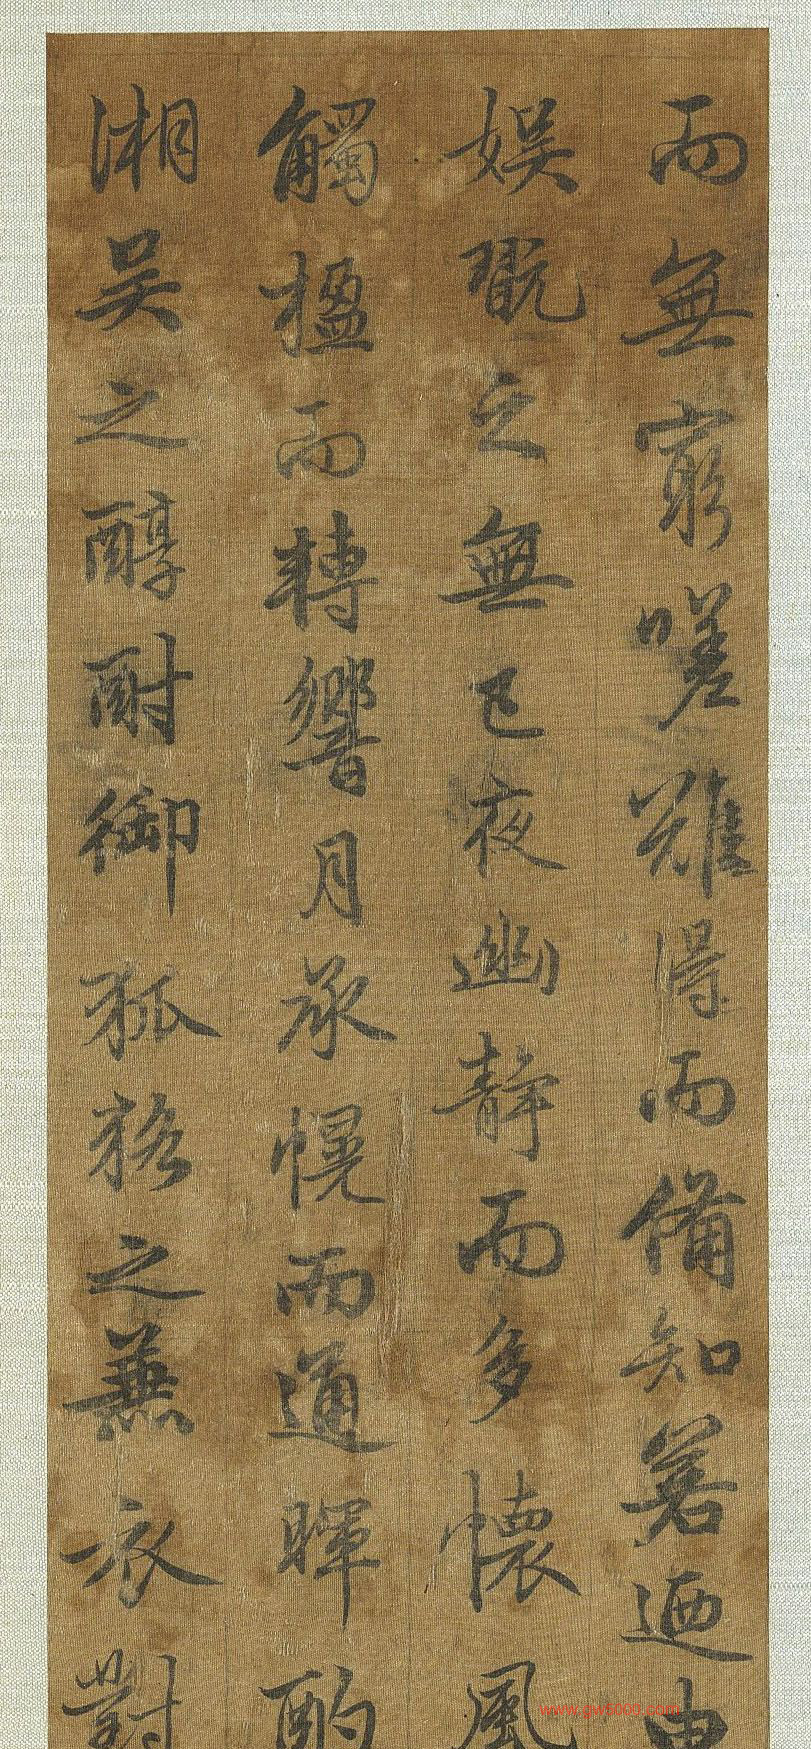 而無窮嗟難得而備知若迺
娛翫之無已夜幽靜而多懷風
觸楹而轉響月承幌而通暉酌
湘吳之醇酎御狐狢之兼衣對
www.gw5500.com